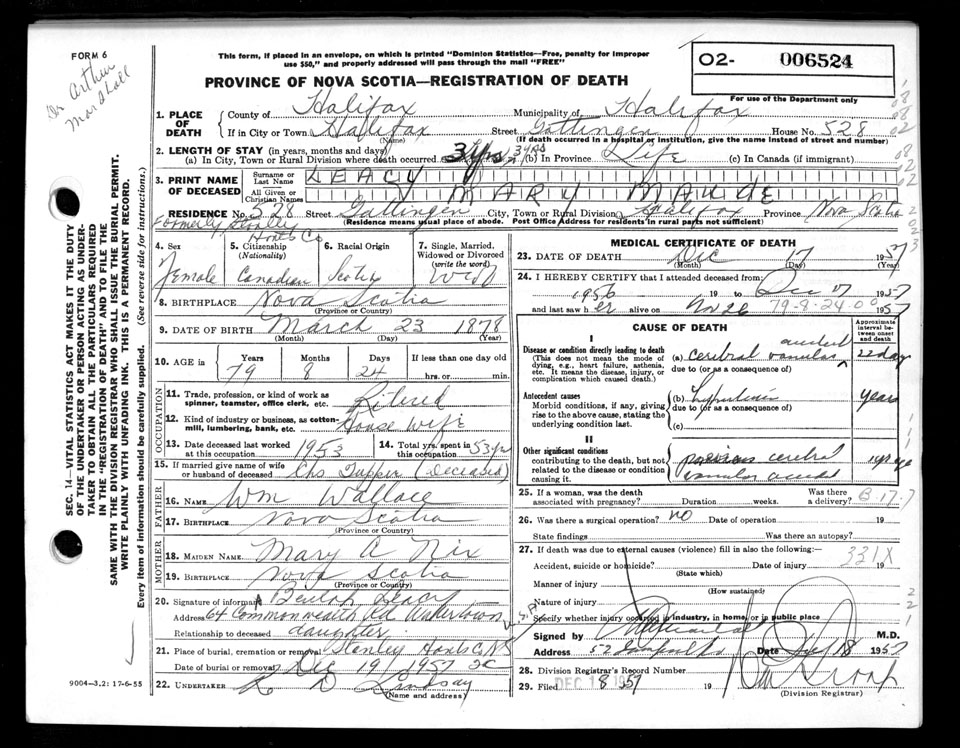 FORM 6
Dr Arthur
Marshall
This form, if placed in an envelope, on which is printed "Dominion Statistics—Free, penalty for improper
use $50," and properly addressed will pass through the mail "FREE"
PROVINCE OF NOVA SCOTIA—REGISTRATION OF DEATH
O2- 006524
For use of the Department only
1. PLACE OF DEATH
County of Halifax Municipality of Halifax
If in City or Town Halifax Street Gottingen House No. 528
(Name) (If death occurred in a hospital or institution, give the name instead of street and number)
2. LENGTH OF STAY (in years, months and days)
(a) In City, Town or Rural Division where death occurred 3 yrs (b) In Province Life (c) In Canada (if immigrant)
3. PRINT NAME OF DECEASED
Surname or Last Name LEACY
All Given or Christian Names MARY MAUDE
RESIDENCE No. 528 Street Gottingen City, Town or Rural Division Halifax Province Nova Scotia
(Residence means usual place of abode. Post Office Address for residents in rural parts not sufficient)
Formerly Stanley
Hants Co
4. Sex Female
5. Citizenship (Nationality) Canadian
6. Racial Origin Scotch
7. Single, Married, Widowed or Divorced (write the word) Wid
8. BIRTHPLACE Nova Scotia
(Province or Country)
9. DATE OF BIRTH March 23 1878
(Month) (Day) (Year)
10. AGE in Years Months Days If less than one day old
79 8 24 hrs. or min.
OCCUPATION
11. Trade, profession, or kind of work as spinner, teamster, office clerk, etc. Retired
12. Kind of industry or business, as cotton-mill, lumbering, bank, etc. House wife
13. Date deceased last worked at this occupation 1953
14. Total yrs. spent in this occupation 53 yrs
15. If married give name of wife or husband of deceased Chs Tupper (Deceased)
FATHER
16. NAME Wm Wallace
17. BIRTHPLACE Nova Scotia
(Province or Country)
MOTHER
18. MAIDEN NAME Mary A Nix
19. BIRTHPLACE Nova Scotia
(Province or Country)
20. Signature of informant Beulah Leacy
Address 64 Commonwealth Rd Watertown U.S.A
Relationship to deceased daughter
21. Place of burial, cremation or removal Stanley Hants Co NS
Date of burial or removal Dec 19 1957
22. UNDERTAKER Lindsay
(Name and address)
MEDICAL CERTIFICATE OF DEATH
23. DATE OF DEATH Dec 17 1957
(Month) (Day) (Year)
24. I HEREBY CERTIFY that I attended deceased from:
1956 19 to Dec 17 1957
and last saw her alive on Nov 26 1957
79-8-24-00
CAUSE OF DEATH
Approximate interval between onset and death
I
Disease or condition directly leading to death
(This does not mean the mode of dying, e.g., heart failure, asthenia, etc. It means the disease, injury, or complication which caused death.
(a) cerebral vascular accident 22 day
due to (or as a consequence of)
Antecedent causes
Morbid conditions, if any, giving rise to the above cause, stating the underlying condition last.
(b) years
due to (or as a consequence of)
(c)
II
Other significant conditions
contributing to the death, but not related to the disease or condition causing it.
previous cerebral
vascular accident
25. If a woman, was the death associated with pregnancy? Duration weeks. Was there a delivery?
26. Was there a surgical operation? NO Date of operation 19
State findings Was there an autopsy?
27. If death was due to external causes (violence) fill in also the following:—
Accident, suicide or homicide? Date of injury 19
(State which)
331X
Manner of injury
(How sustained)
Nature of injury
Specify whether injury occurred in industry, in home, or in public place
Signed by M.D.
Address Date Dec 18 1957
28. Division Registrar's Record Number
29. Filed DEC 18 1957 19
(Division Registrar)
SEC. 14—VITAL STATISTICS ACT MAKES IT THE DUTY
OF THE UNDERTAKER OR PERSON ACTING AS UNDER-
TAKER TO OBTAIN ALL THE PARTICULARS REQUIRED
IN THE "REGISTRATION OF DEATH" AND TO FILE THE
SAME WITH THE DIVISION REGISTRAR WHO SHALL ISSUE THE BURIAL PERMIT.
WRITE PLAINLY WITH UNFADING INK. THIS IS A PERMANENT RECORD.
Every item of information should be carefully supplied. (See reverse side for instructions.)
9004—3.2: 17-6-55